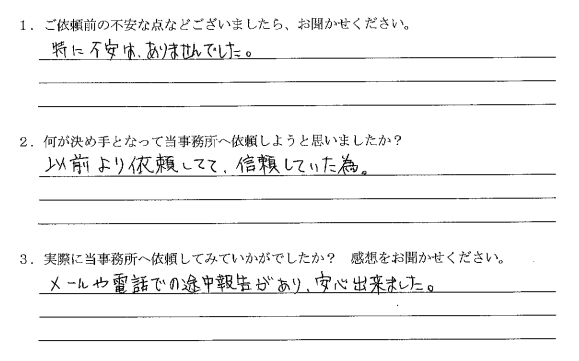 1．ご依頼前の不安な点などございましたら、お聞かせください。
特に不安は、ありませんでした。
2．何が決め手となって当事務所へ依頼しようと思いましたか？
以前より依頼してて、信頼していた為。
3．実際に当事務所へ依頼してみていかがでしたか？　感想をお聞かせください。
メールや電話での途中報告があり、安心出来ました。